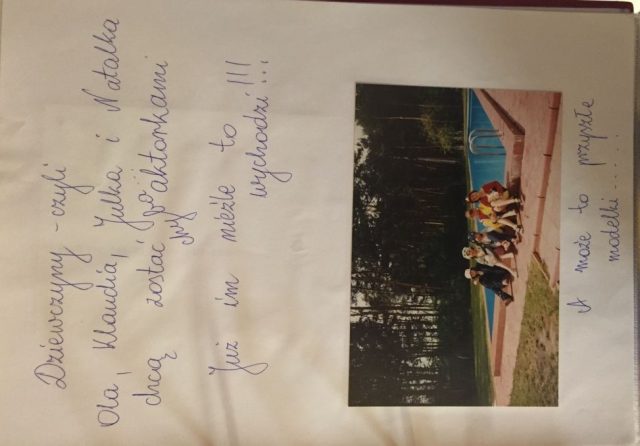 Dziewczyny - czyli
Ola, Klaudia, Julka i Natalka
chcą zostać aktorkami
Już im nieźle to
wychodzi!!!...
A może to przyszłe
modelki.....